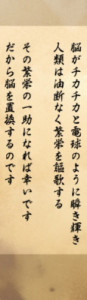 脳がチカチカと電球のように瞬き輝き
人類は油断なく繁栄を謳歌する
その繁栄の一助になれば幸いです
だから脳を置換するのです